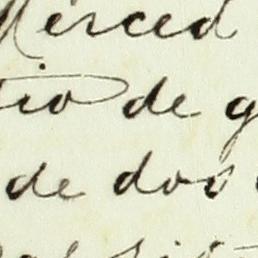 Merced
tio de g
de dos